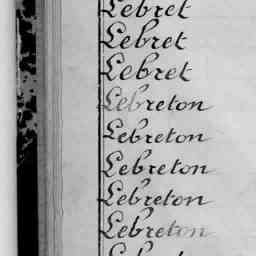 Lebret
Lebret
Lebret
Lebreton
Lebreton
Lebreton
Lebreton
Lebreton